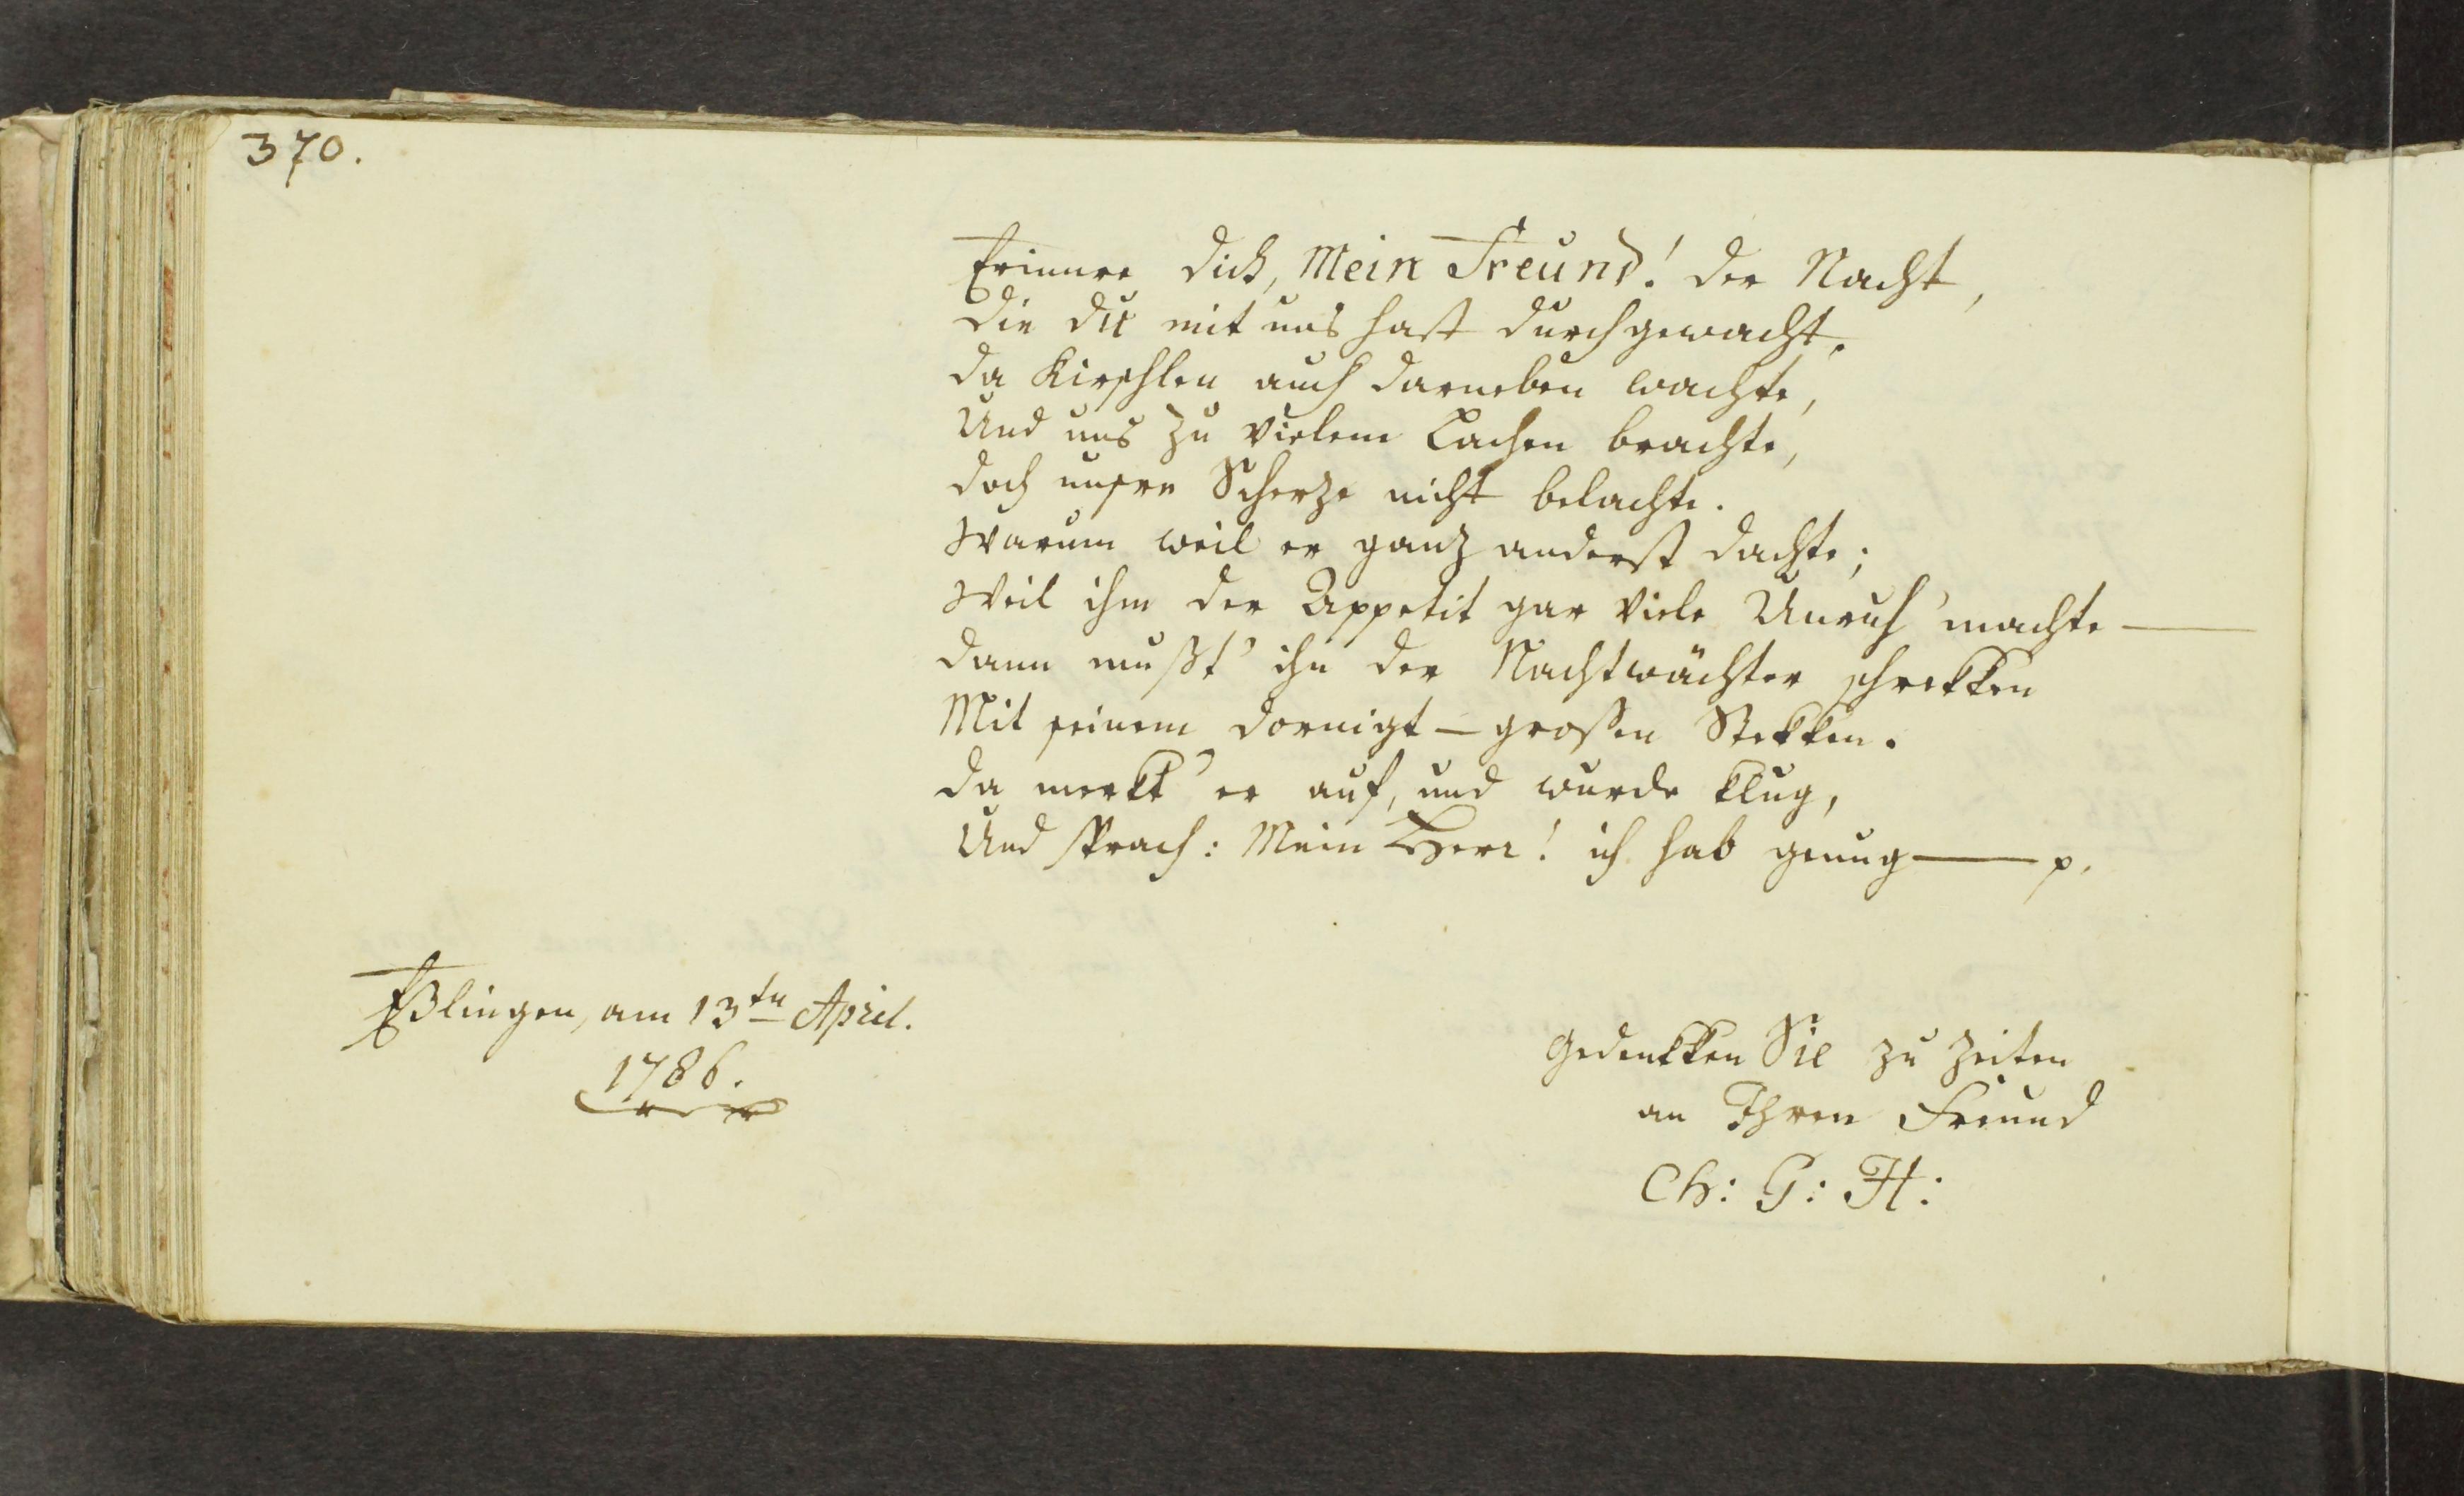 370.
Erinnre dich, Mein Freund! der Nacht,
die du mit uns hast durchgewacht.
da Kirschlen auch darneben wachte,
Und uns zu vielem Lachen brachte,
doch unsre Scherze nicht belachte.
Warum weil er ganz anderst dachte;
Weil ihm der Appetit gar viele Unruh' machte —
dann mußt' ihn der Nachtwächter schrekken
Mit seinem dornigt - großen Stekken.
da merkt' er auf, und wurde klug,
Und sprach: Mein Herr! ich hab genug — p.
Eßlingen, am 13ten April.
1786.
Gedenkken Sie zu Zeiten
an Ihren Freund
Ch: G: H: